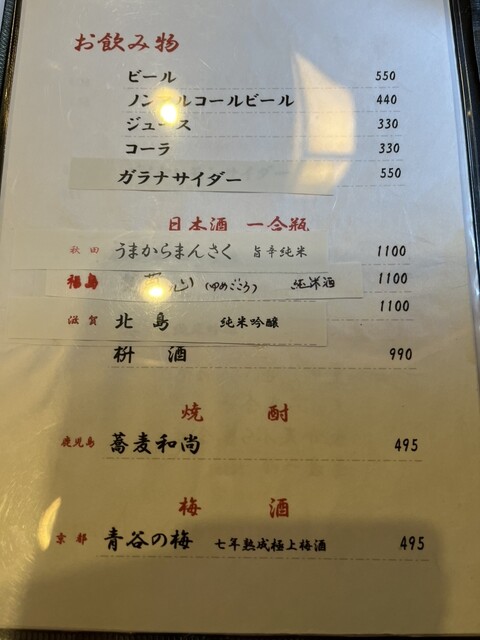 お飲み物
ビール 550
ノンアルコールビール 440
ジュース 330
コーラ 330
ガラナサイダー 550
日本酒 一合瓶
秋田 うまからまんさく 旨辛純米 1100
福島 (ゆめごころ) 純米酒 1100
1100
滋賀 北島 純米吟醸
枡酒 990
焼酎
鹿児島 蕎麦和尚 495
梅酒
京都 青谷の梅 七年熟成極上梅酒 495